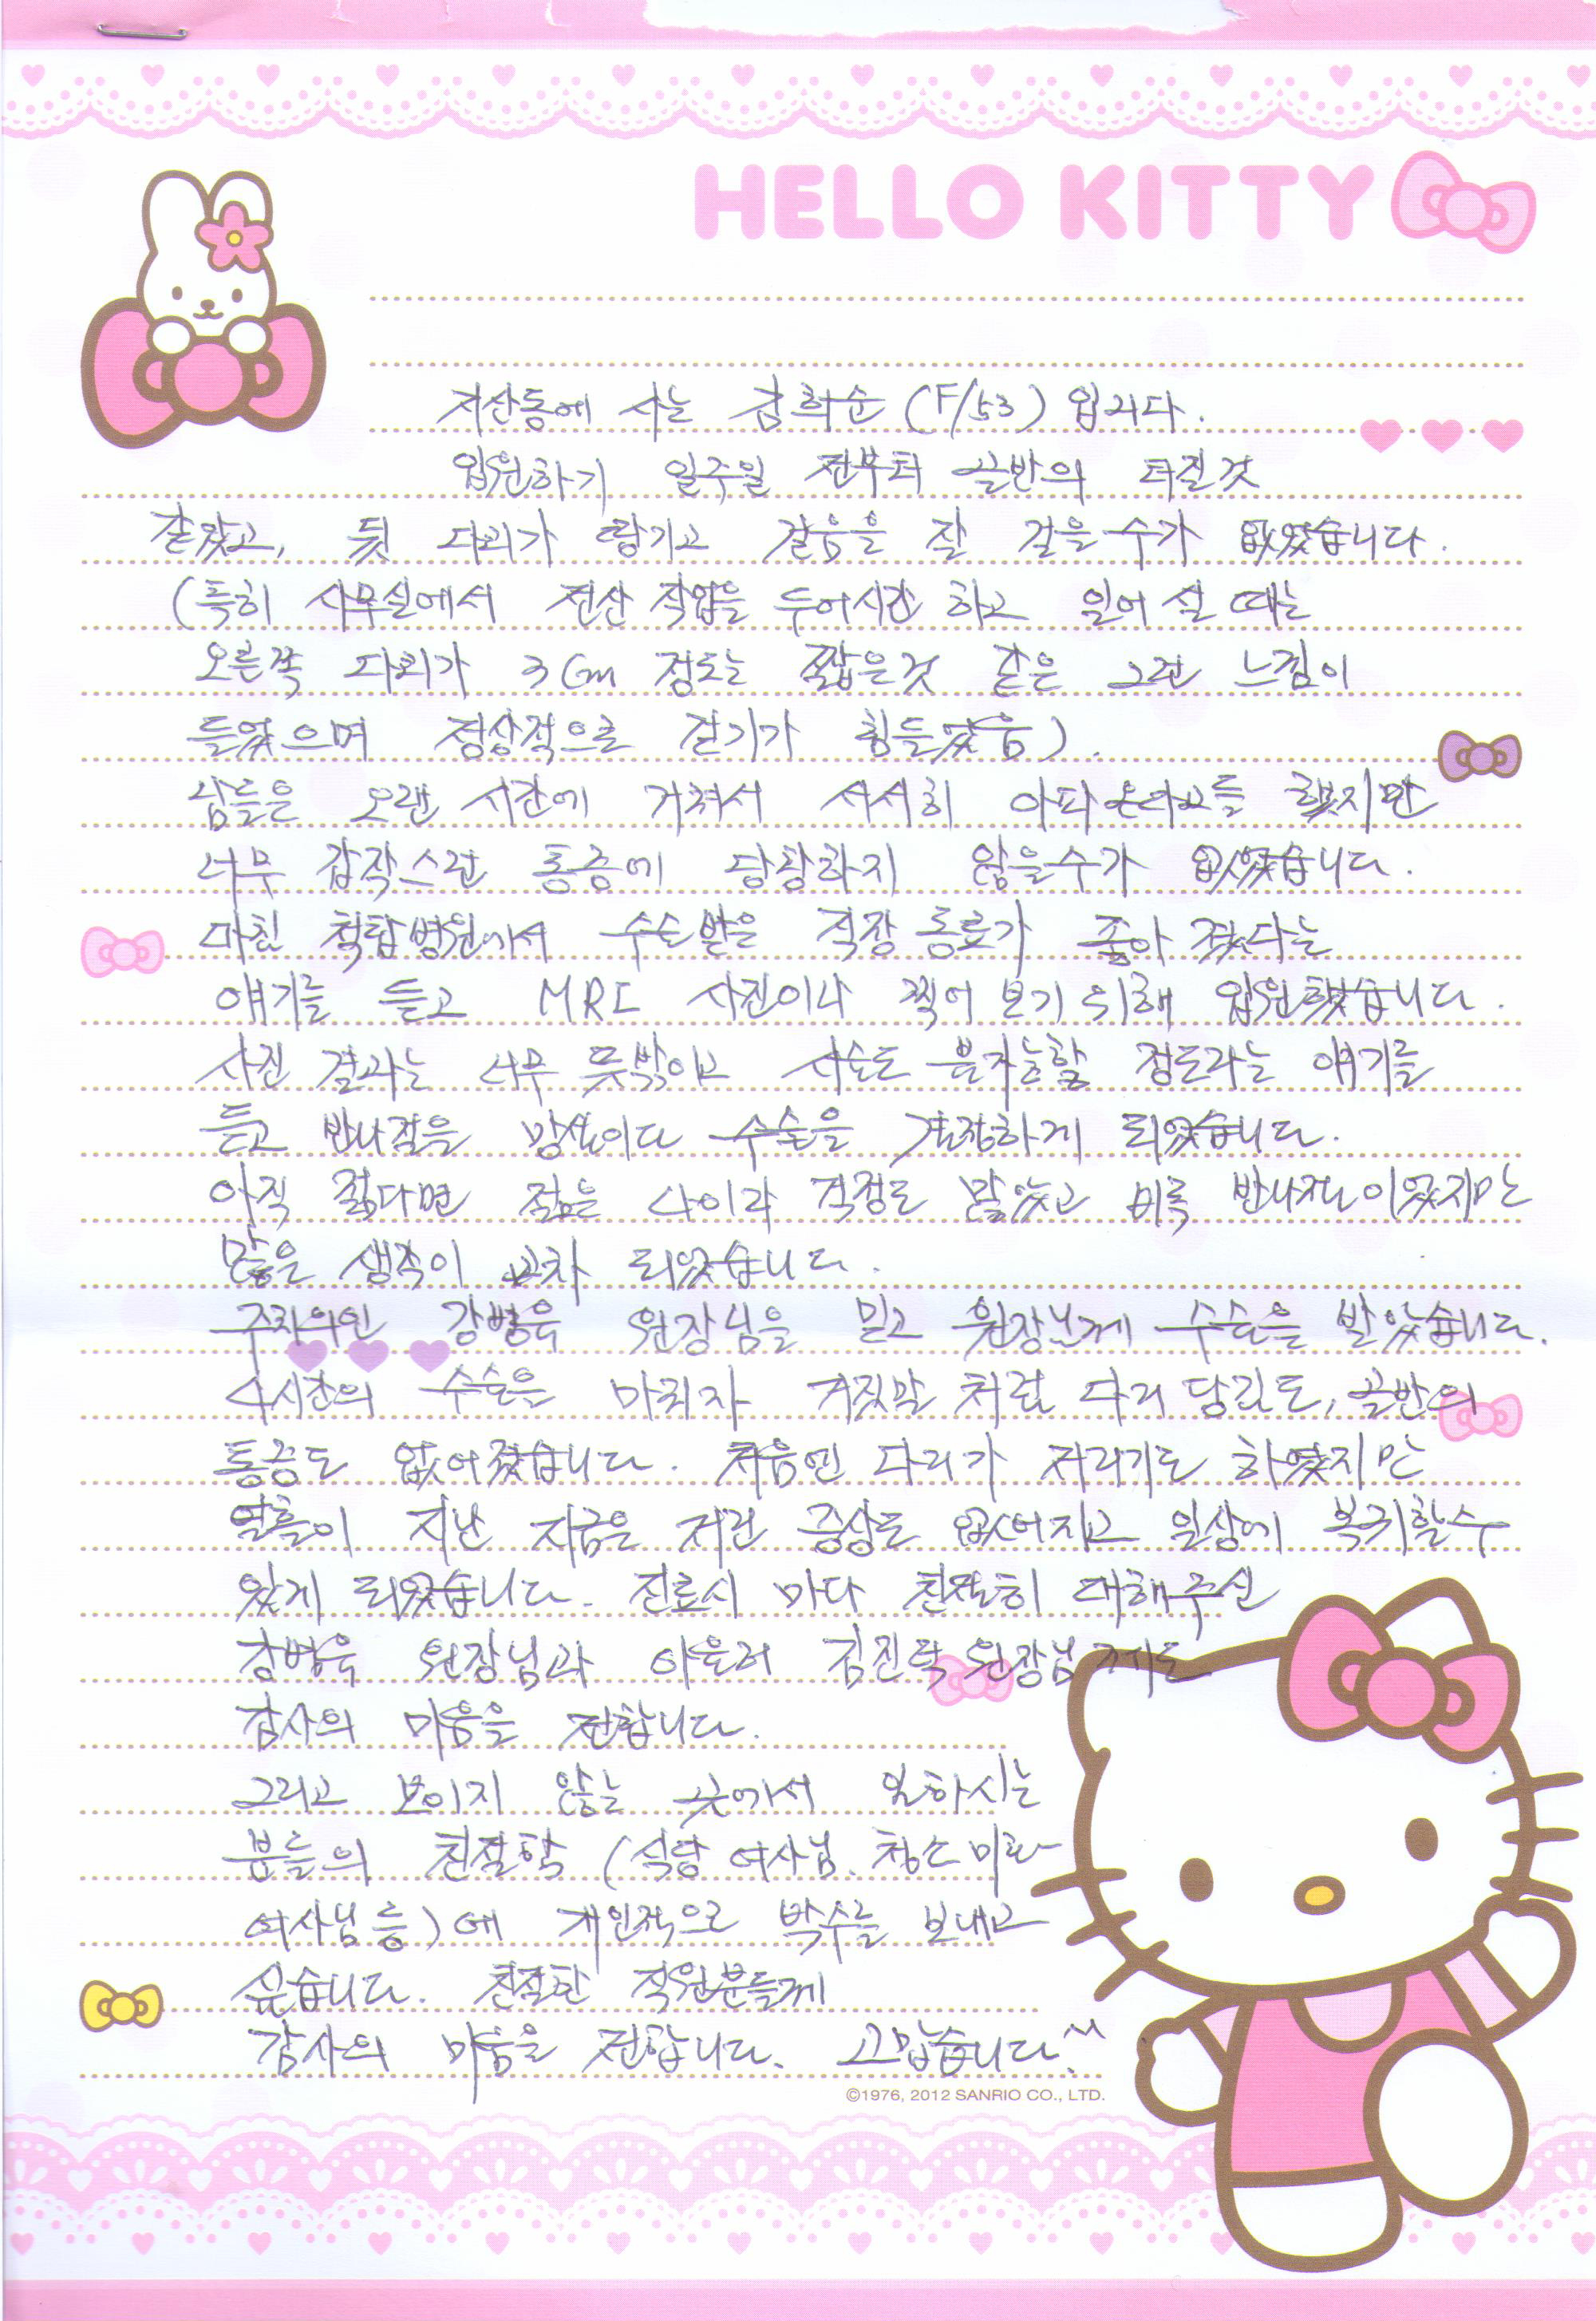 HELLO KITTY
지산동에 사는 김희순 (F/53) 입니다.
입원하기 일주일 전부터 골반의 터질것
같았고, 뒷 다리가 땅기고 걸음을 잘 걸을수가 없었습니다.
(특히 사무실에서 전산 작업을 두어시간 하고 일어 설 때는
오른쪽 다리가 3Cm 정도는 짧은것 같은 그런 느낌이
들었으며 정상적으로 걷기가 힘들었음).
남들은 오랜 시간에 거쳐서 서서히 아파 온다고들 했지만
너무 갑작스런 통증에 당황하지 않을수가 없었습니다.
마침 척탑병원에서 수술받은 직장 동료가 좋아 졌다는
얘기를 듣고 MRI 사진이나 찍어 보기 위해 입원했습니다.
사진 결과는 너무 뜻밖이고 시술도 불가능할 정도라는 얘기를
듣고 반나절을 망설이다 수술을 결정하게 되었습니다.
아직 젊다면 젊은 나이라 걱정도 많았고 비록 반나절이었지만
많은 생각이 교차 되었습니다.
주치의인 강병욱 원장님을 믿고 원장님께 수술을 받았습니다.
4시간의 수술을 마치자 거짓말 처럼 다리 당김도, 골반의
통증도 없어졌습니다. 처음엔 다리가 저리기도 하였지만
열흘이 지난 지금은 저린 증상도 없어지고 일상에 복귀할수
있게 되었습니다. 진료시 마다 친절히 대해주신
강병욱 원장님과 아울러 김진탁 원장님께도
감사의 마음을 전합니다.
그리고 보이지 않는 곳에서 일하시는
분들의 친절함 (식당 여사님, 청소 미화
여사님 등)에 개인적으로 박수를 보내고
싶습니다. 친절한 직원분들께
감사의 마음을 전합니다. 고맙습니다.^^
©1976, 2012 SANRIO CO., LTD.